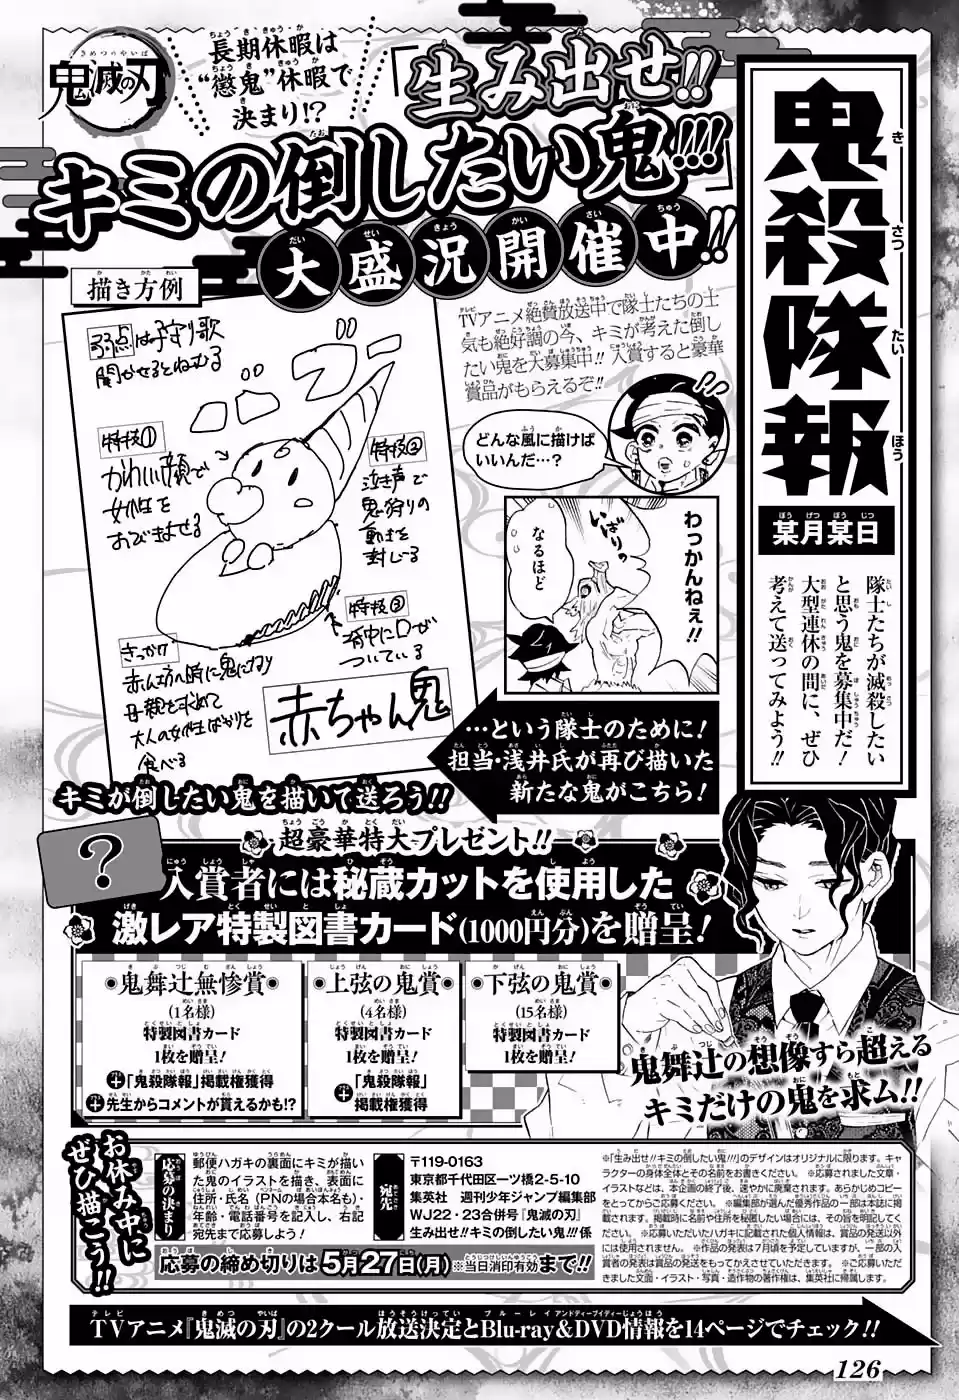 鬼滅の刃
長期休暇は
“懲鬼”休暇で
決まり!?
「生み出せ!!
キミの倒したい鬼!!!」
大盛況開催中!!
鬼殺隊報
某月某日
隊士たちが滅殺したい
と思う鬼を募集中だ!
大型連休の間に、ぜひ
考えて送ってみよう!!
描き方例
弱点は子守り歌
聞かせるとねむる
特技①
かわいい顔で
女性を
おびきよせる
特技②
泣き声で
鬼狩りの
動きを
封じる
特技③
背中に口が
ついている
きっかけ
赤ん坊の時に鬼になり
母親を求めて
大人の女性ばかりを
食べる
赤ちゃん鬼
TVアニメ絶賛放送中で隊士たちの士
気も絶好調の今、キミが考えた倒し
たい鬼を大募集中!! 入賞すると豪華
賞品がもらえるぞ!!
どんな風に描けば
いいんだ…?
わっかんねぇ!!
いばりの
なるほど
…という隊士のために!
担当・浅井氏が再び描いた
新たな鬼がこちら!
キミが倒したい鬼を描いて送ろう!!
?
超豪華特大プレゼント!!
入賞者には秘蔵カットを使用した
激レア特製図書カード(1000円分)を贈呈!
鬼舞辻無惨賞
(1名様)
特製図書カード
1枚を贈呈!
+「鬼殺隊報」掲載権獲得
+先生からコメントが貰えるかも!?
上弦の鬼賞
(4名様)
特製図書カード
1枚を贈呈!
+「鬼殺隊報」
掲載権獲得
下弦の鬼賞
(15名様)
特製図書カード
1枚を贈呈!
鬼舞辻の想像すら超える
キミだけの鬼を求ム!!
お休み中に
ぜひ描こう!!
応募の決まり
郵便ハガキの裏面にキミが描い
た鬼のイラストを描き、表面に
住所・氏名(PNの場合本名も)・
年齢・電話番号を記入し、右記
宛先まで応募しよう!
宛先
〒119-0163
東京都千代田区一ツ橋2-5-10
集英社 週刊少年ジャンプ編集部
WJ22・23合併号『鬼滅の刃』
生み出せ!!キミの倒したい鬼!!!係
応募の締め切りは5月27日(月)※当日消印有効まで!!
※「生み出せ!!キミの倒したい鬼!!!」のデザインはオリジナルに限ります。キャ
ラクターの身体全体とその名前をお書きください。 ※応募されました文章・
イラストなどは、本企画の終了後、速やかに廃棄されます。あらかじめコピー
をとってからご応募ください。 ※編集部が選んだ優秀作品の一部は本誌に掲
載されます。掲載時に名前や住所を秘匿したい場合には、その旨を明記してく
ださい。 ※応募いただいたハガキに記載された個人情報は、賞品の発送以外
には使用されません。 ※作品の発表は7月頃を予定していますが、一部の入
賞者の発表は賞品の発送をもってかえさせていただきます。 ※ご応募いただ
きました文面・イラスト・写真・造作物の著作権は、集英社に帰属します。
TVアニメ『鬼滅の刃』の2クール放送決定とBlu-ray&DVD情報を14ページでチェック!!
126